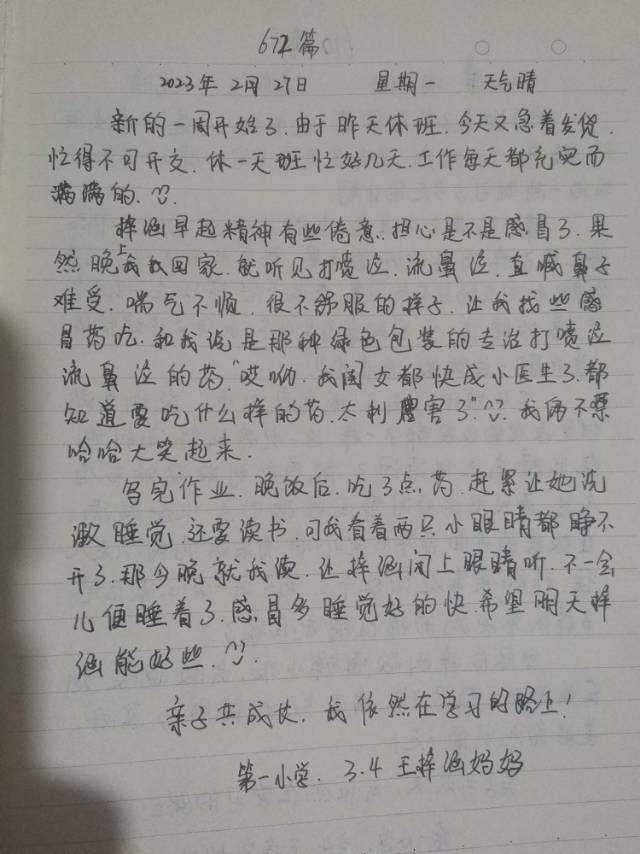 672篇
2023年2月27日 星期一 天气晴
新的一周开始了.由于昨天休班.今天又急着发货.
忙得不可开交.休一天班忙好几天.工作每天都充实而
满满的.
梓涵早起精神有些倦意.担心是不是感冒了.果
然晚上我回家.就听见打喷泣.流鼻泣.直喊鼻子
难受.喘气不顺.很不舒服的样子.让我找些感
冒药吃.和我说是那种绿色包装的专治打喷泣
流鼻泣的药"哎呦.我闺女都快成小医生了.都
知道要吃什么样的药.太利害了".我俩不禁
哈哈大笑起来.
写完作业.晚饭后.吃了点药.赶紧让她洗
漱睡觉.还要读书.可我看着两只小眼睛都睁不
开了.那今晚就我读.让梓涵闭上眼睛听.不一会
儿便睡着了.感冒多睡觉好的快.希望明天梓
涵能好些.
亲子共成长.我依然在学习的路上!
第一小学.3.4王梓涵妈妈